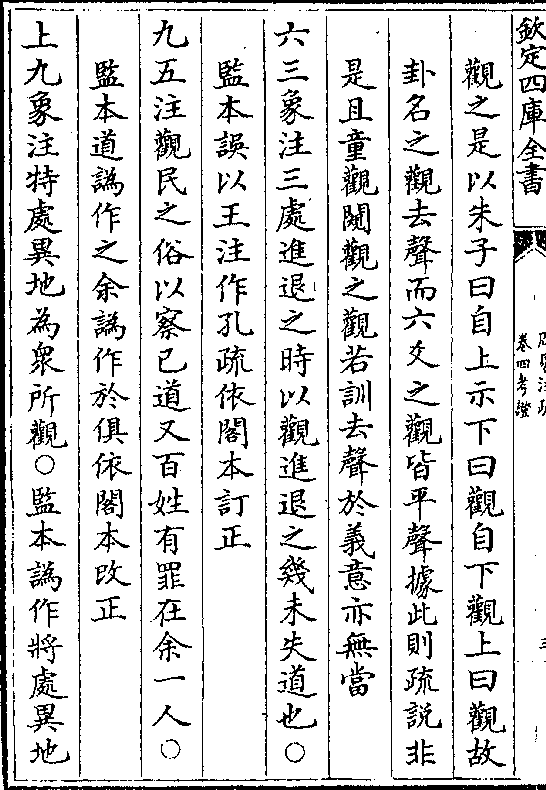 欽定四庫全書
卷四考證
觀之是以朱子曰自上示下曰觀自下觀上曰觀故
卦名之觀去聲而六爻之觀皆平聲據此則疏説非
是且童觀闚觀之觀若訓去聲於義意亦無當
六三象注三處進退之時以觀進退之幾未失道也○
監本誤以王注作孔疏依閣本訂正
九五注觀民之俗以察已道又百姓有罪在余一人○
監本道譌作之余譌作於俱依閣本改正
上九象注特處異地為衆所觀○監本譌作將處異地